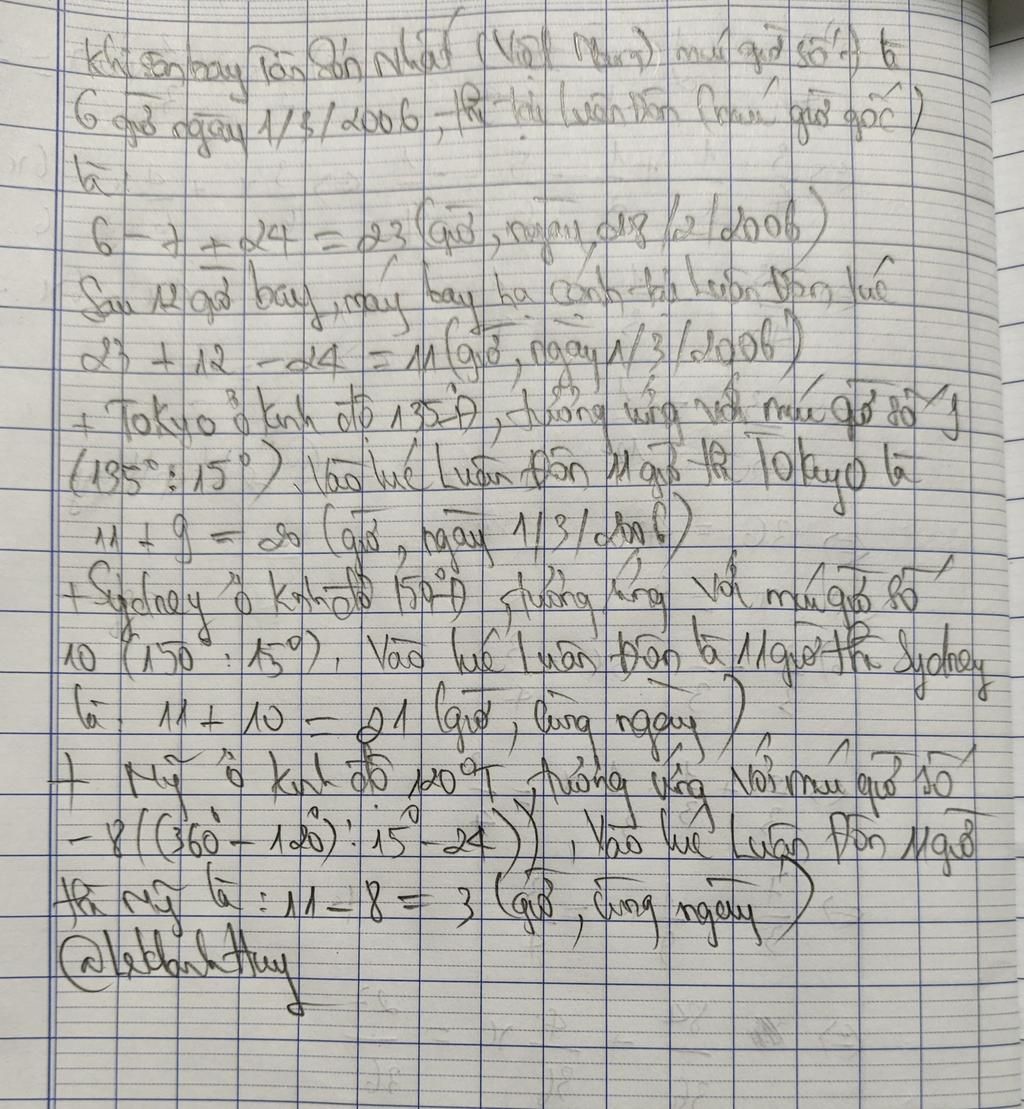 Khi sân bay Tân Sơn Nhất (Việt Nam) múi giờ số 7 là
6 giờ ngày 1/3/2006, thì tại Luân Đôn (múi giờ gốc)
là:
6 - 7 + 24 = 23 (giờ, ngày 28/2/2006)
Sau 12 giờ bay, máy bay hạ cánh tại Luân Đôn lúc
23 + 12 - 24 = 11 (giờ, ngày 1/3/2006)
+ Tokyo ở kinh độ 135°Đ, tương ứng với múi giờ số 9
(135° : 15°). Vào lúc Luân Đôn 11 giờ thì Tokyo là
11 + 9 = 20 (giờ, ngày 1/3/2006)
+ Sydney ở kinh độ 150°Đ, tương ứng với múi giờ số
10 (150° : 15°). Vào lúc Luân Đôn là 11 giờ thì Sydney
là: 11 + 10 = 21 (giờ, cùng ngày)
+ Mỹ ở kinh độ 120°T, tương ứng với múi giờ số
- 8 ((360° - 120°) : 15° - 24)), Vào lúc Luân Đôn 11 giờ
thì Mỹ là : 11 - 8 = 3 (giờ, cùng ngày)